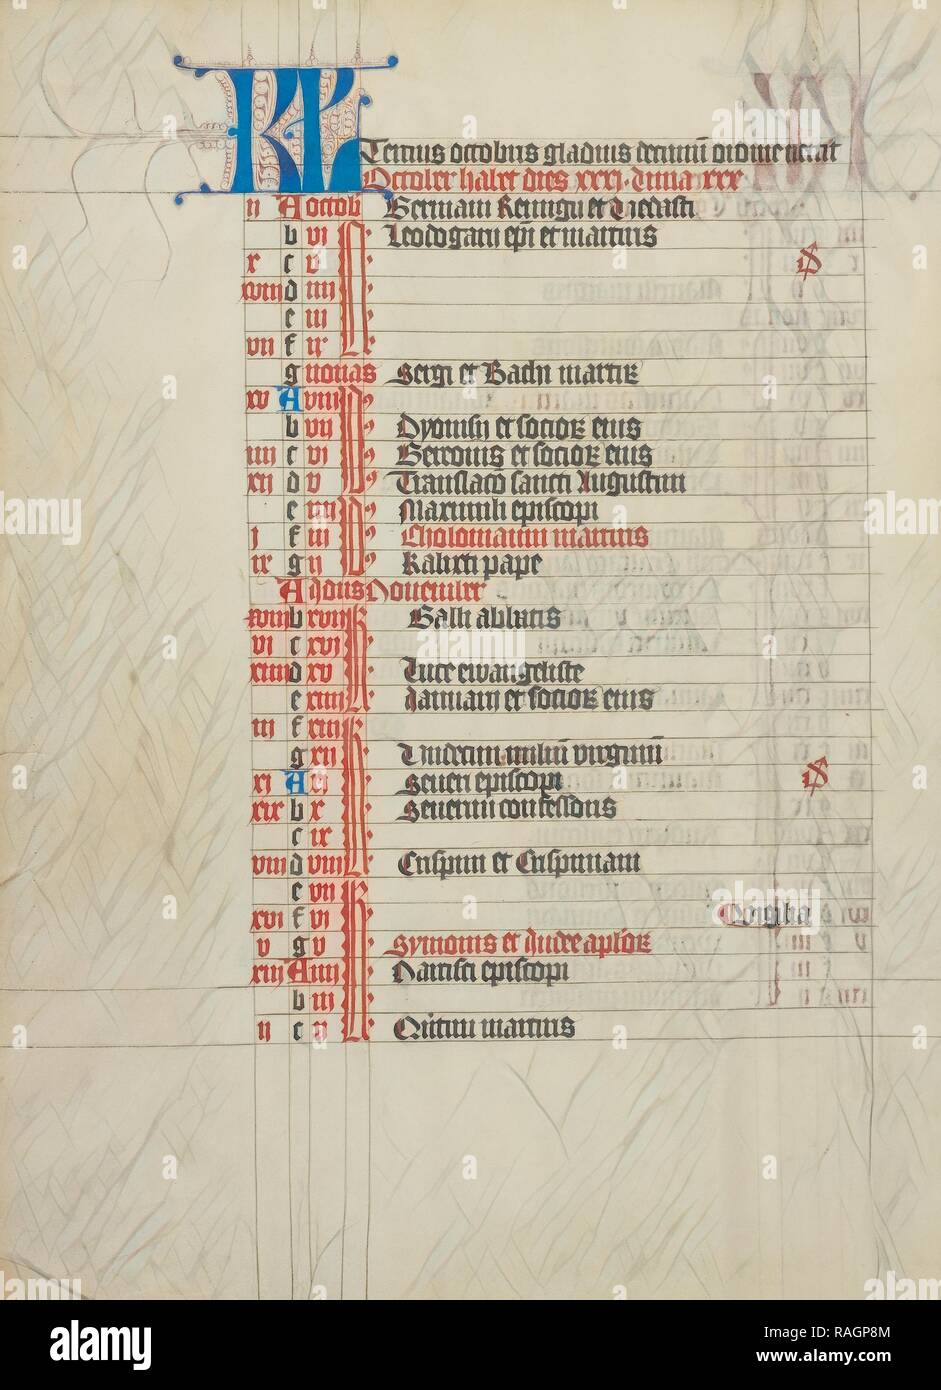 KL Tertius octobris gladius decimum ordine nectit
October habet dies xxxi. Luna xxx
ii A octob Germani Remigii et Vedasti
b vi N Leodogarii epi et martiris
x c v S
xviii d iiii
e iii
vii f ii
g nonas Sergi et Bachi martir
xv A viii
b vii Dyonisii et socior eius
iiii c vi Gereonis et socior eius
xii d v Translaco sancti Augustini
e iiii Maximili episcopi
i f iii Cholomanni martiris
ix g ii Kalixti pape
A ydus Nouember
xviii b xvii Galli abbatis
vi c xvi
xiiii d xv Luce ewangeliste
e xiiii Januarii et socior eius
iii f xiii
g xii Undecim milium virginum
xi A xi Seueri episcopi S
xix b x Seuerini confessoris
c ix
viii d viii Crispini et Crispiniani
e vii
xvi f vi Vigilia
v g v Symonis et Jude aplor
xiii A iiii Narcisci episcopi
b iii
ii c ii Quitini martiris
alamy
Image ID: RAGP8M
www.alamy.com